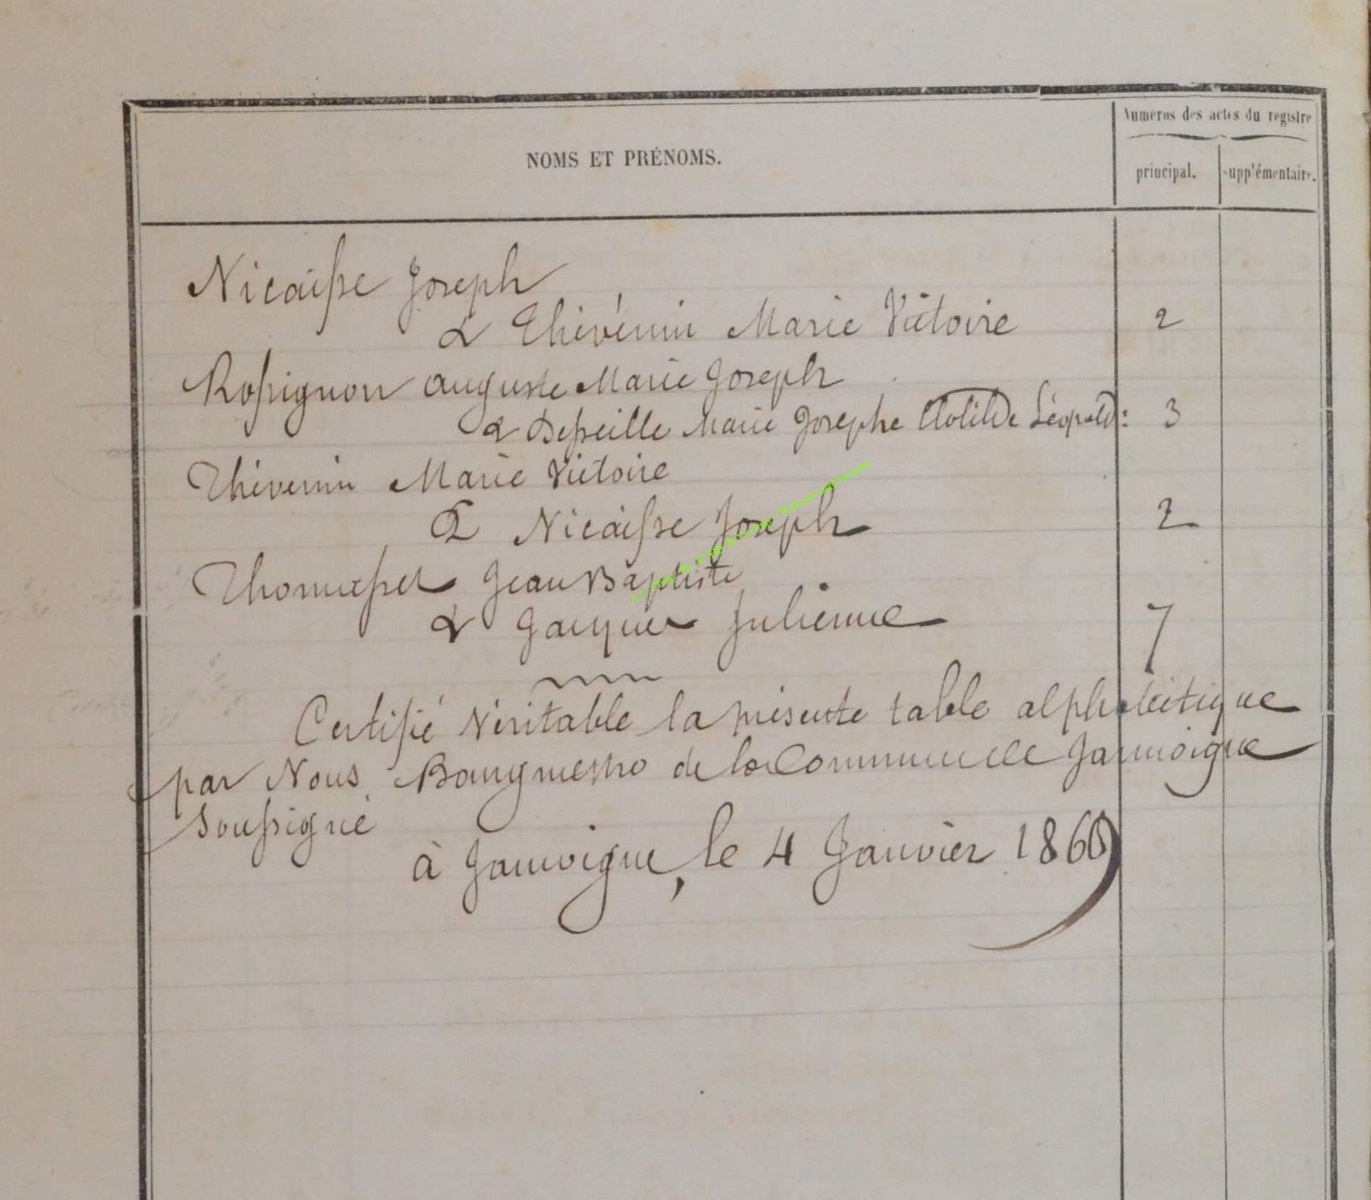 Numéros des actes du registre
NOMS ET PRÉNOMS.
principal. supplémentaire.
Nicaisse Joseph
& Thévenin Marie Victoire 2
Rossignon Auguste Marie Joseph
& Marie Josephe Clotilde Léopold: 3
Thévenin Marie Victoire
& Nicaisse Joseph 2
Thomasset Jean Baptiste
& Jacques Julienne 7
Certifié Véritable la présente table alphabétique
par Nous Bourgmestre de la Commune de Jamoigne
Soussigné
à Jamoigne, le 4 Janvier